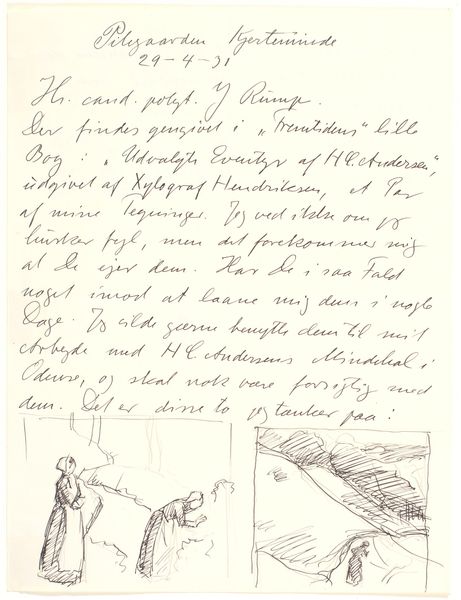 Pilegaarden Kjerteminde
29-4-31
Hr. cand. polyt. J Rump.
Der findes gengivet i „Fremtidens" lille
Bog: „Udvalgte Eventyr af H.C. Andersen",
udgivet af Xylograf Hendriksen, et Par
af mine Tegninger. Jeg ved ikke om jeg
husker fejl, men det forekommer mig
at De ejer dem. Har De i saa Fald
noget imod at laane mig dem i nogle
Dage. Jeg vilde gerne benytte dem til mit
Arbejde med H C Andersens Mindehal i
Odense, og skal nok være forsigtig med
dem. Det er disse to jeg tænker paa: